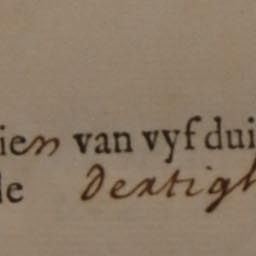 ien van vyf dui
de Dertigh